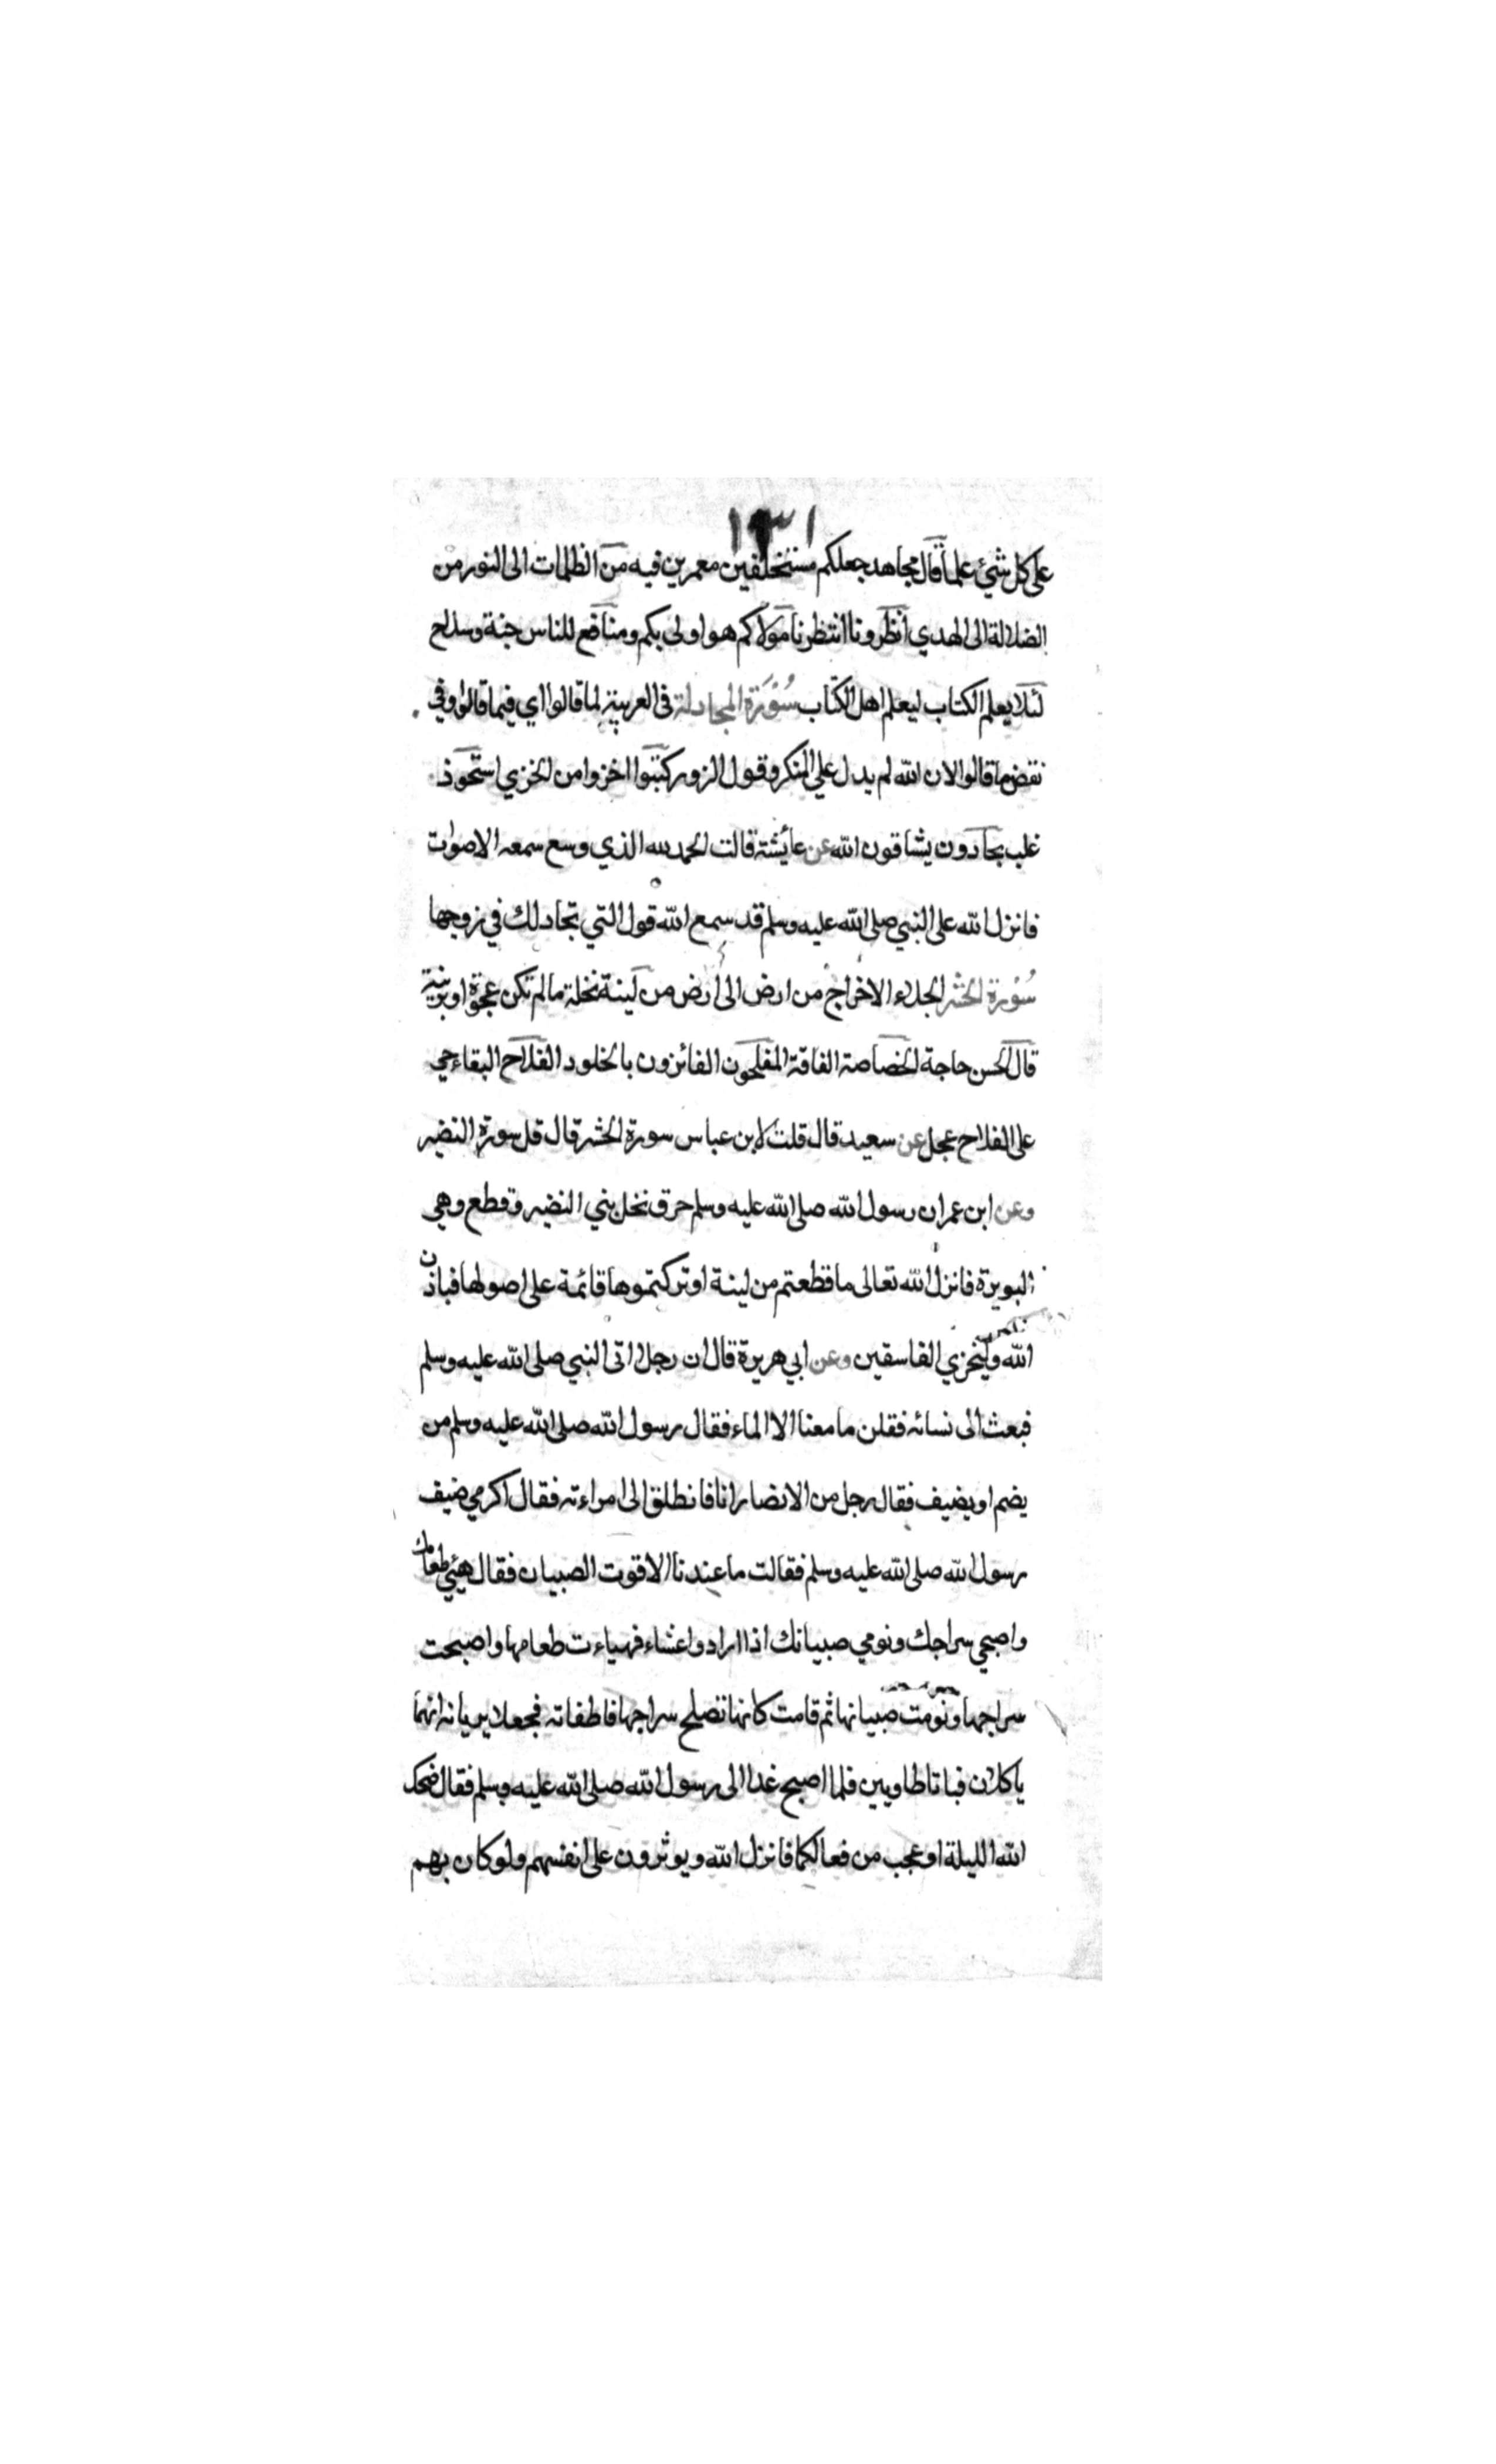 على كل شيئ علما قال مجاهد جعلكم مستخلفين معمرين فيه من الظلمات الى النور من
الضلالة الى الهدي انظرونا انتظرنا مولاكم هو اولى بكم ومنافع للناس جنة وسلاح
لئلا يعلم الكتاب ليعلم اهل الكتاب سورة المجادلة في العربية لما قالوا اي فيما قالوا وفي
نقض ما قالوا لان الله لم يدل علي المنكر وقول الزور كبتوا اخزوا من الخزي استحوذ
غلب يحادون يشاقون الله عن عايشة قالت الحمد لله الذي وسع سمعه الاصوات
فانزل الله على النبي صلى الله عليه وسلم قد سمع الله قول التي تجادلك في زوجها
سورة الحشر الجلاء الاخراج من ارض الى ارض من لينة نخلة ما لم تكن عجوة او برنية
قال الحسن حاجة الخصاصة الفاقة المفلحون الفائزون بالخلود الفلاح البقاء حي
على الفلاح عجل عن سعيد قال قلت لابن عباس سورة الحشر قال قل سورة النضير
وعن ابن عمر ان رسول الله صلى الله عليه وسلم حرق نخل بني النضير وقطع وهي
البويرة فانزل الله تعالى ما قطعتم من لينة او تركتموها قائمة على اصولها فباذن
الله وليخزي الفاسقين وعن ابي هريرة قال ان رجلا اتى النبي صلى الله عليه وسلم
فبعث الى نسائه فقلن ما معنا الا الماء فقال رسول الله صلى الله عليه وسلم من
يضم او يضيف فقال رجل من الانصار انا فانطلق الى امراءته فقال اكرمي ضيف
رسول الله صلى الله عليه وسلم فقالت ما عندنا الا قوت الصبيان فقال هيئي طعامك
واصبحي سراجك ونومي صبيانك اذا ارادوا عشاء فهياءت طعامها واصبحت
سراجها ونومت صبيانها ثم قامت كانها تصلح سراجها فاطفاته فجعلا يريانه انهما
ياكلان فباتا طاويين فلما اصبح غدا الى رسول الله صلى الله عليه وسلم فقال ضحك
الله الليلة او عجب من فعالكما فانزل الله ويوثرون على انفسهم ولو كان بهم